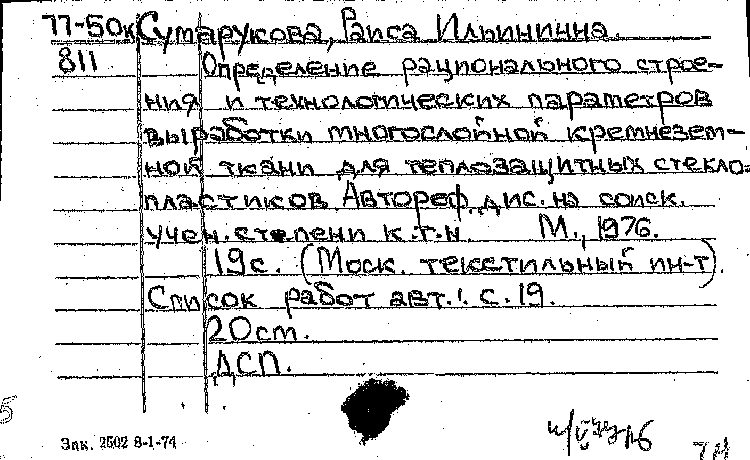 77-50к Сутарукова, Раиса Ильинична.
811 Определение рационального строе-
ния и технологических параметров
выработки многослойной кремнезем-
ной ткани для теплозащитных стекло-
пластиков. Автореф. дис. на соиск.
учен. степени к.т.н. М., 1976.
19с. (Моск. текстильный ин-т).
Список работ авт.: с. 19.
20см.
ДСП.
5
Зак. 2502 8-1-74